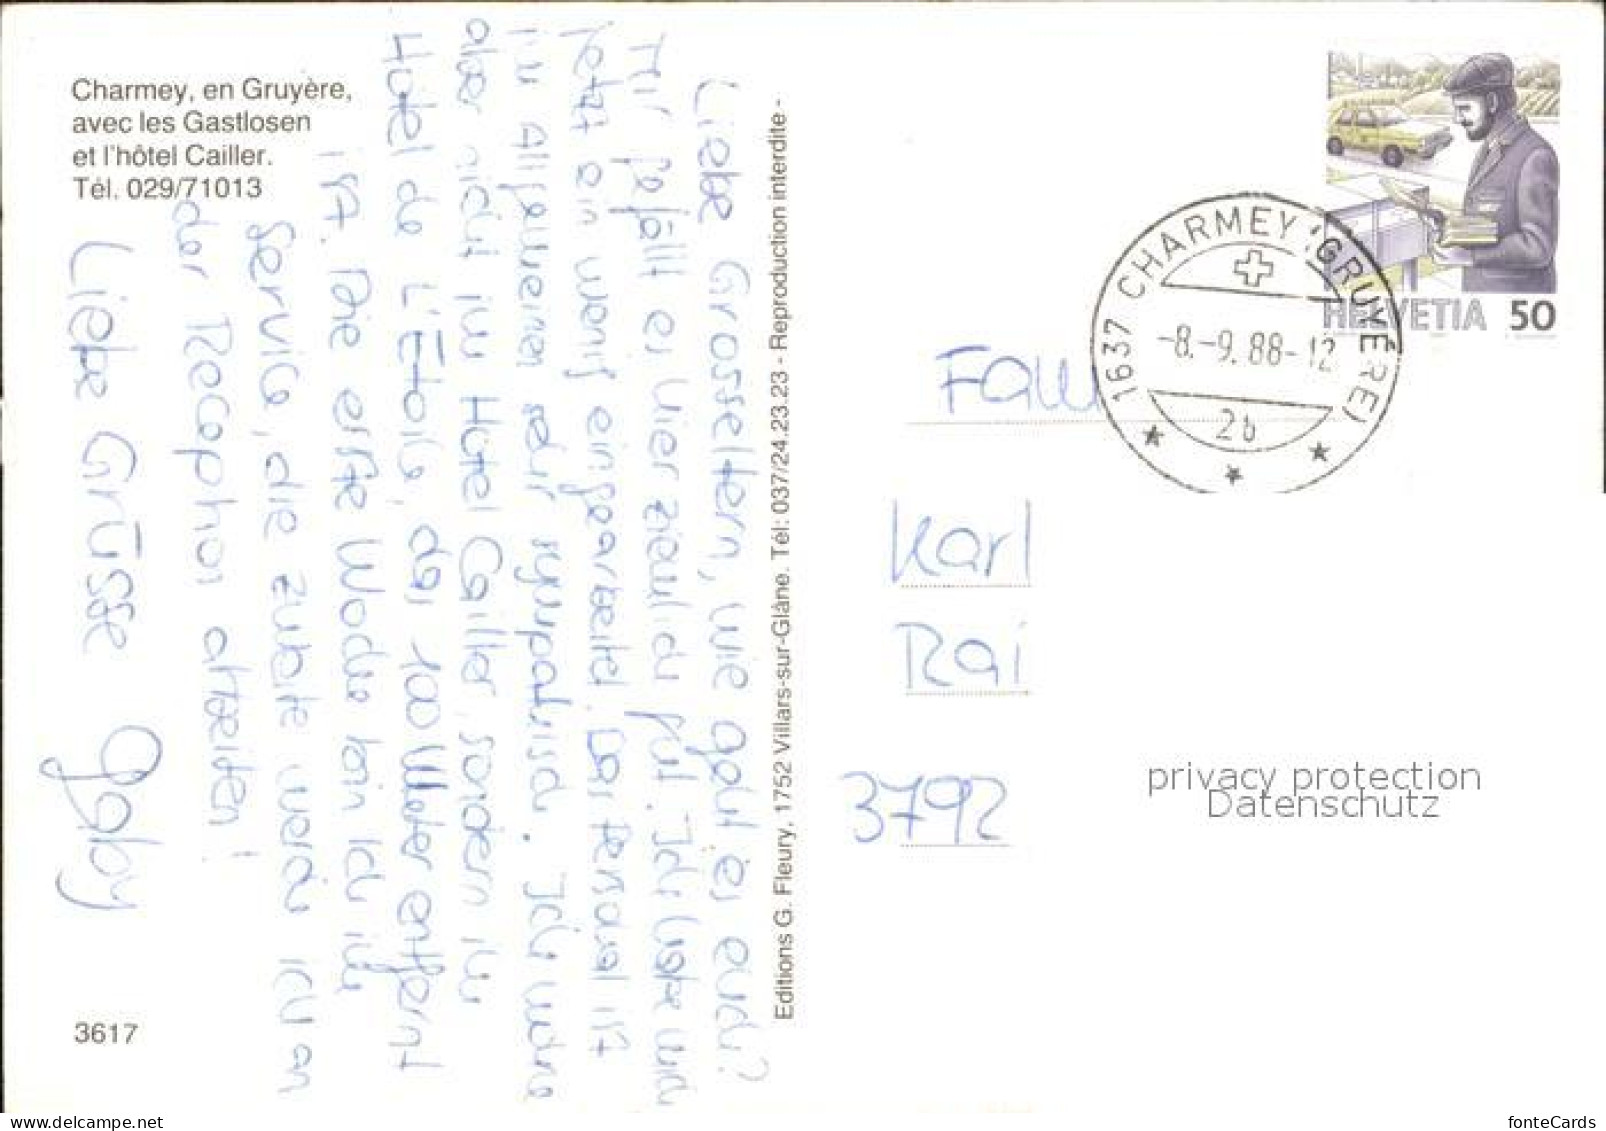 Charmey, en Gruyère,
avec les Gastlosen
et l'hôtel Cailler.
Tél. 029/71013
Liebe Grosseltern, wie geht es euch?
Mir gefällt es hier ziemlich gut. Ich habe mich
jetzt ein wenig eingearbeitet. Das Personal ist
im Allgemeinen sehr sympatisch. Ich wohne
aber nicht im Hotel Cailler, sondern im
Hotel de L'Etoile, das 100 Meter entfernt
ist. Die erste Woche bin ich im
Service, die zweite werde ich an
der Reception arbeiten!
Liebe Grüsse Gaby
3617
Editions G. Fleury, 1752 Villars-sur-Glâne. Tél: 037/24.23.23 - Reproduction interdite -
HELVETIA 50
1637 CHARMEY (GRUYÈRE)
-8.-9.88-12
2b
Fam
Karl
Rai
3792
privacy protection
Datenschutz
www.delcampe.net
fonteCards